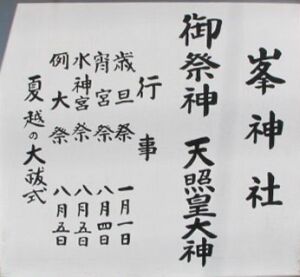 峯神社
御祭神 天照皇大神
行事
歳旦祭 一月一日
宵宮祭 八月四日
水神宮祭 八月五日
例大祭 八月五日
夏越の大祓式